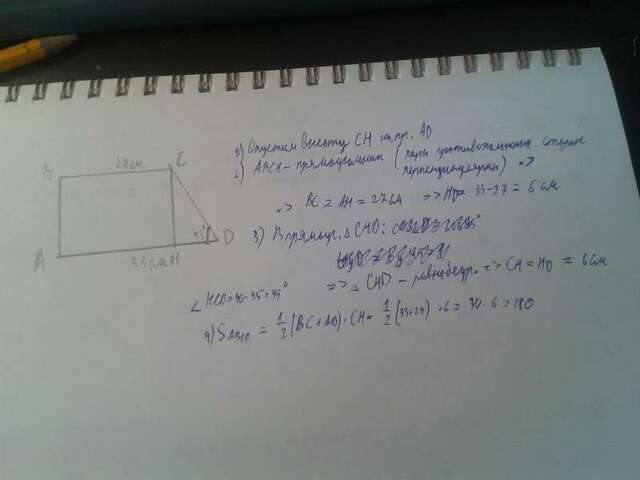 B 27см C
45° D
A 33см H
1) Опустим высоту CH на пр. AD
2) ABCH - прямоугольник (пары противоположных сторон
перпендикулярны) =>
=> BC = AH = 27 см => HD = 33-27 = 6 см
3) В прямоуг. △ CHD:
∠ HCD = 90 - 45 = 45°
=> △ CHD - равнобедр. => CH = HD = 6 см
4) S ABCD = 1/2 (BC + AD) · CH = 1/2 (33+27) · 6 = 30 · 6 = 180